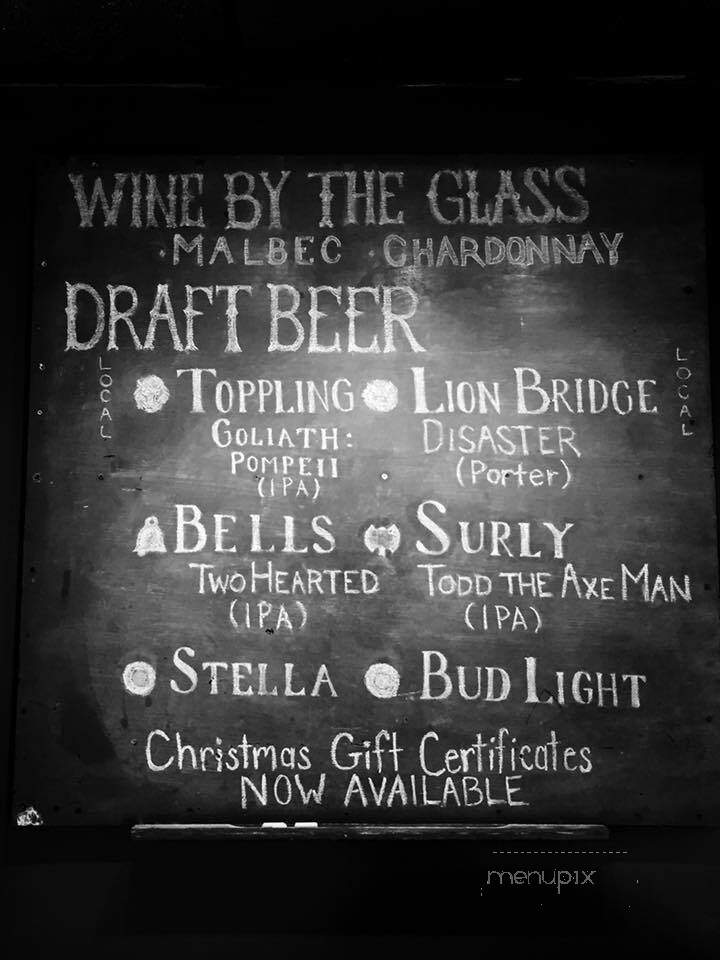 WINE BY THE GLASS
· MALBEC · CHARDONNAY
DRAFT BEER
LOCAL
TOPPLING
GOLIATH:
POMPEII
(IPA)
LION BRIDGE
DISASTER
(Porter)
LOCAL
BELLS
TWO HEARTED
(IPA)
SURLY
TODD THE AXE MAN
(IPA)
STELLA
BUD LIGHT
Christmas Gift Certificates
NOW AVAILABLE
menupix